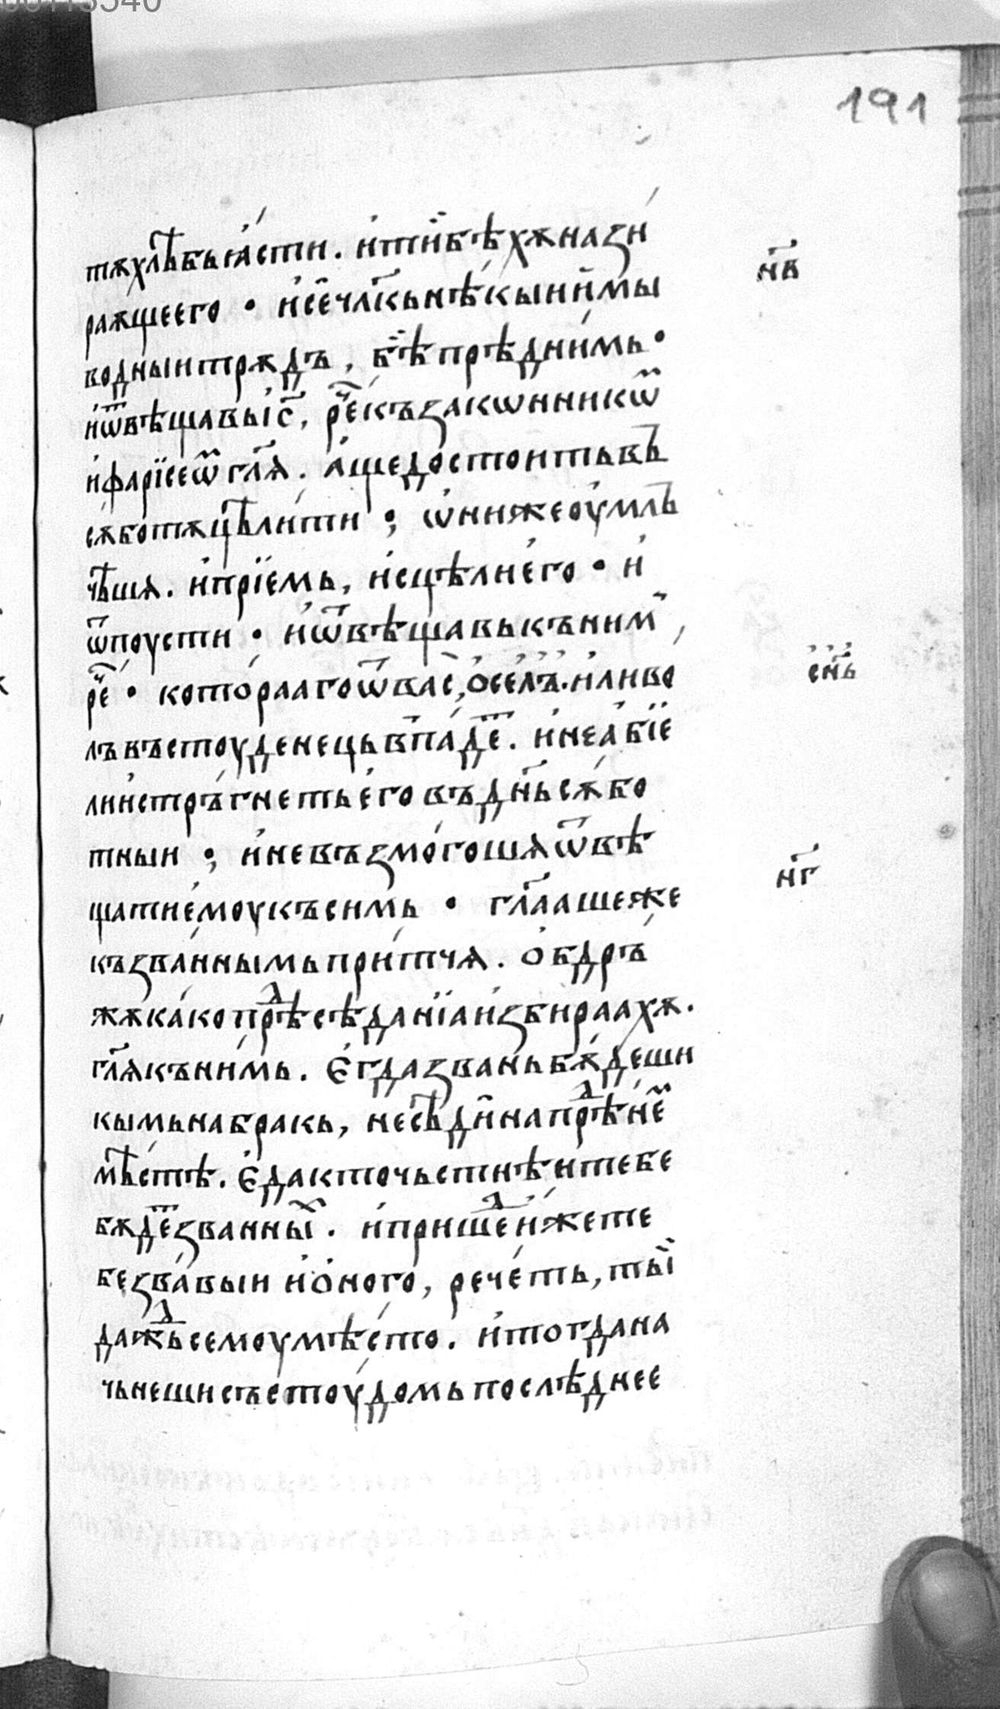 191
тѫхлѣбьꙗ́сти. и҆тїи҆бѣхѫнази
раѫщеего • и҆сеч҃лкьнѣкыии҆мы
водныитрѫдъ, бѣ҆прѣдни́мь •
и҆ѿвѣщавьі҆с, ре҆къзаконникѡ
и҆фарїсеѡ гл҃ѧ. а҆щедостоитьвъ
сѫботѫцѣли́ти ; ѡ҆ниижеоу҆млъ
чѣшѧ. и҆прїемь, и҆сцѣлиего • и҆
ѿпоусти • и҆ѿвѣщавькъним ,
ре • кото́рааго ѿ вас, о҆селъ. и҆ливо
лъвъстоуденець впаде. и҆неабїе
лии҆стръ́гнетье҆говъдн҃ьсѫ́бо
тныи ; и҆невъзмо́гошѧ ѿвѣ
щатие҆моукъсимь • гл҃аашеже
къзва́ннымьпри́тчѧ. о҆бдръ
жѫка́копрѣсѣда́нїаи҆збираахѫ.
гл҃ѧкъни́мь. є҆гдазваньбѫ́деши
кымьнабракь, несѣдинапрѣ́нее
мѣстѣ. є҆дакточьстнѣи҆тебе
бѫдезванный. и҆пришеи҆жете
безва́выи и҆о҆ного, рече́ть, тый
даж̾ьсемоумѣ́сто. и҆тогдана
чьнешисъстоудомьпослѣднее
н҃в
сн҃ь
н҃г